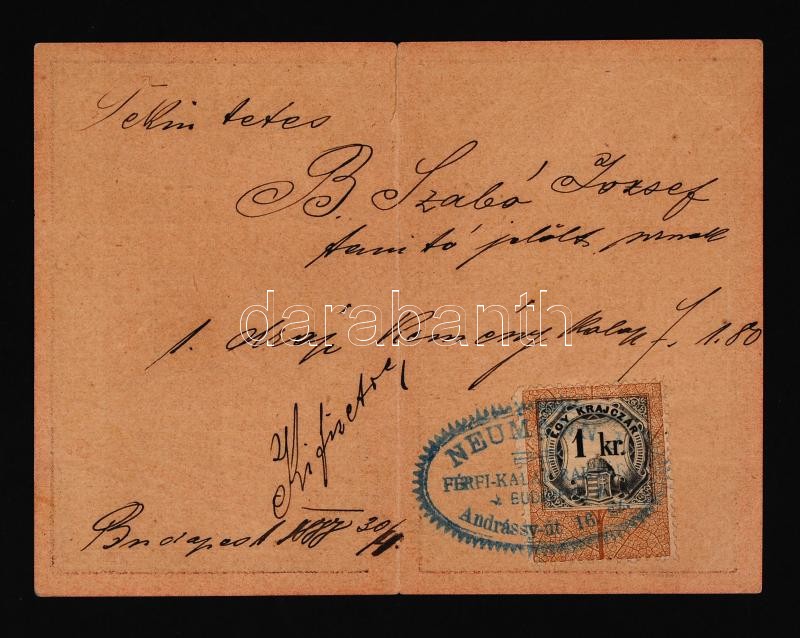 Tekintetes
B. Szabó József
tanitó jelölt urnak
1. drap Kemény kalap f. 1.80
Kifizetve
Budapest 30/4.
darabanth
EGY KRAJCZÁR
1 kr.
NEUM
FÉRFI-KAL
BUD
Andrássy-út 16